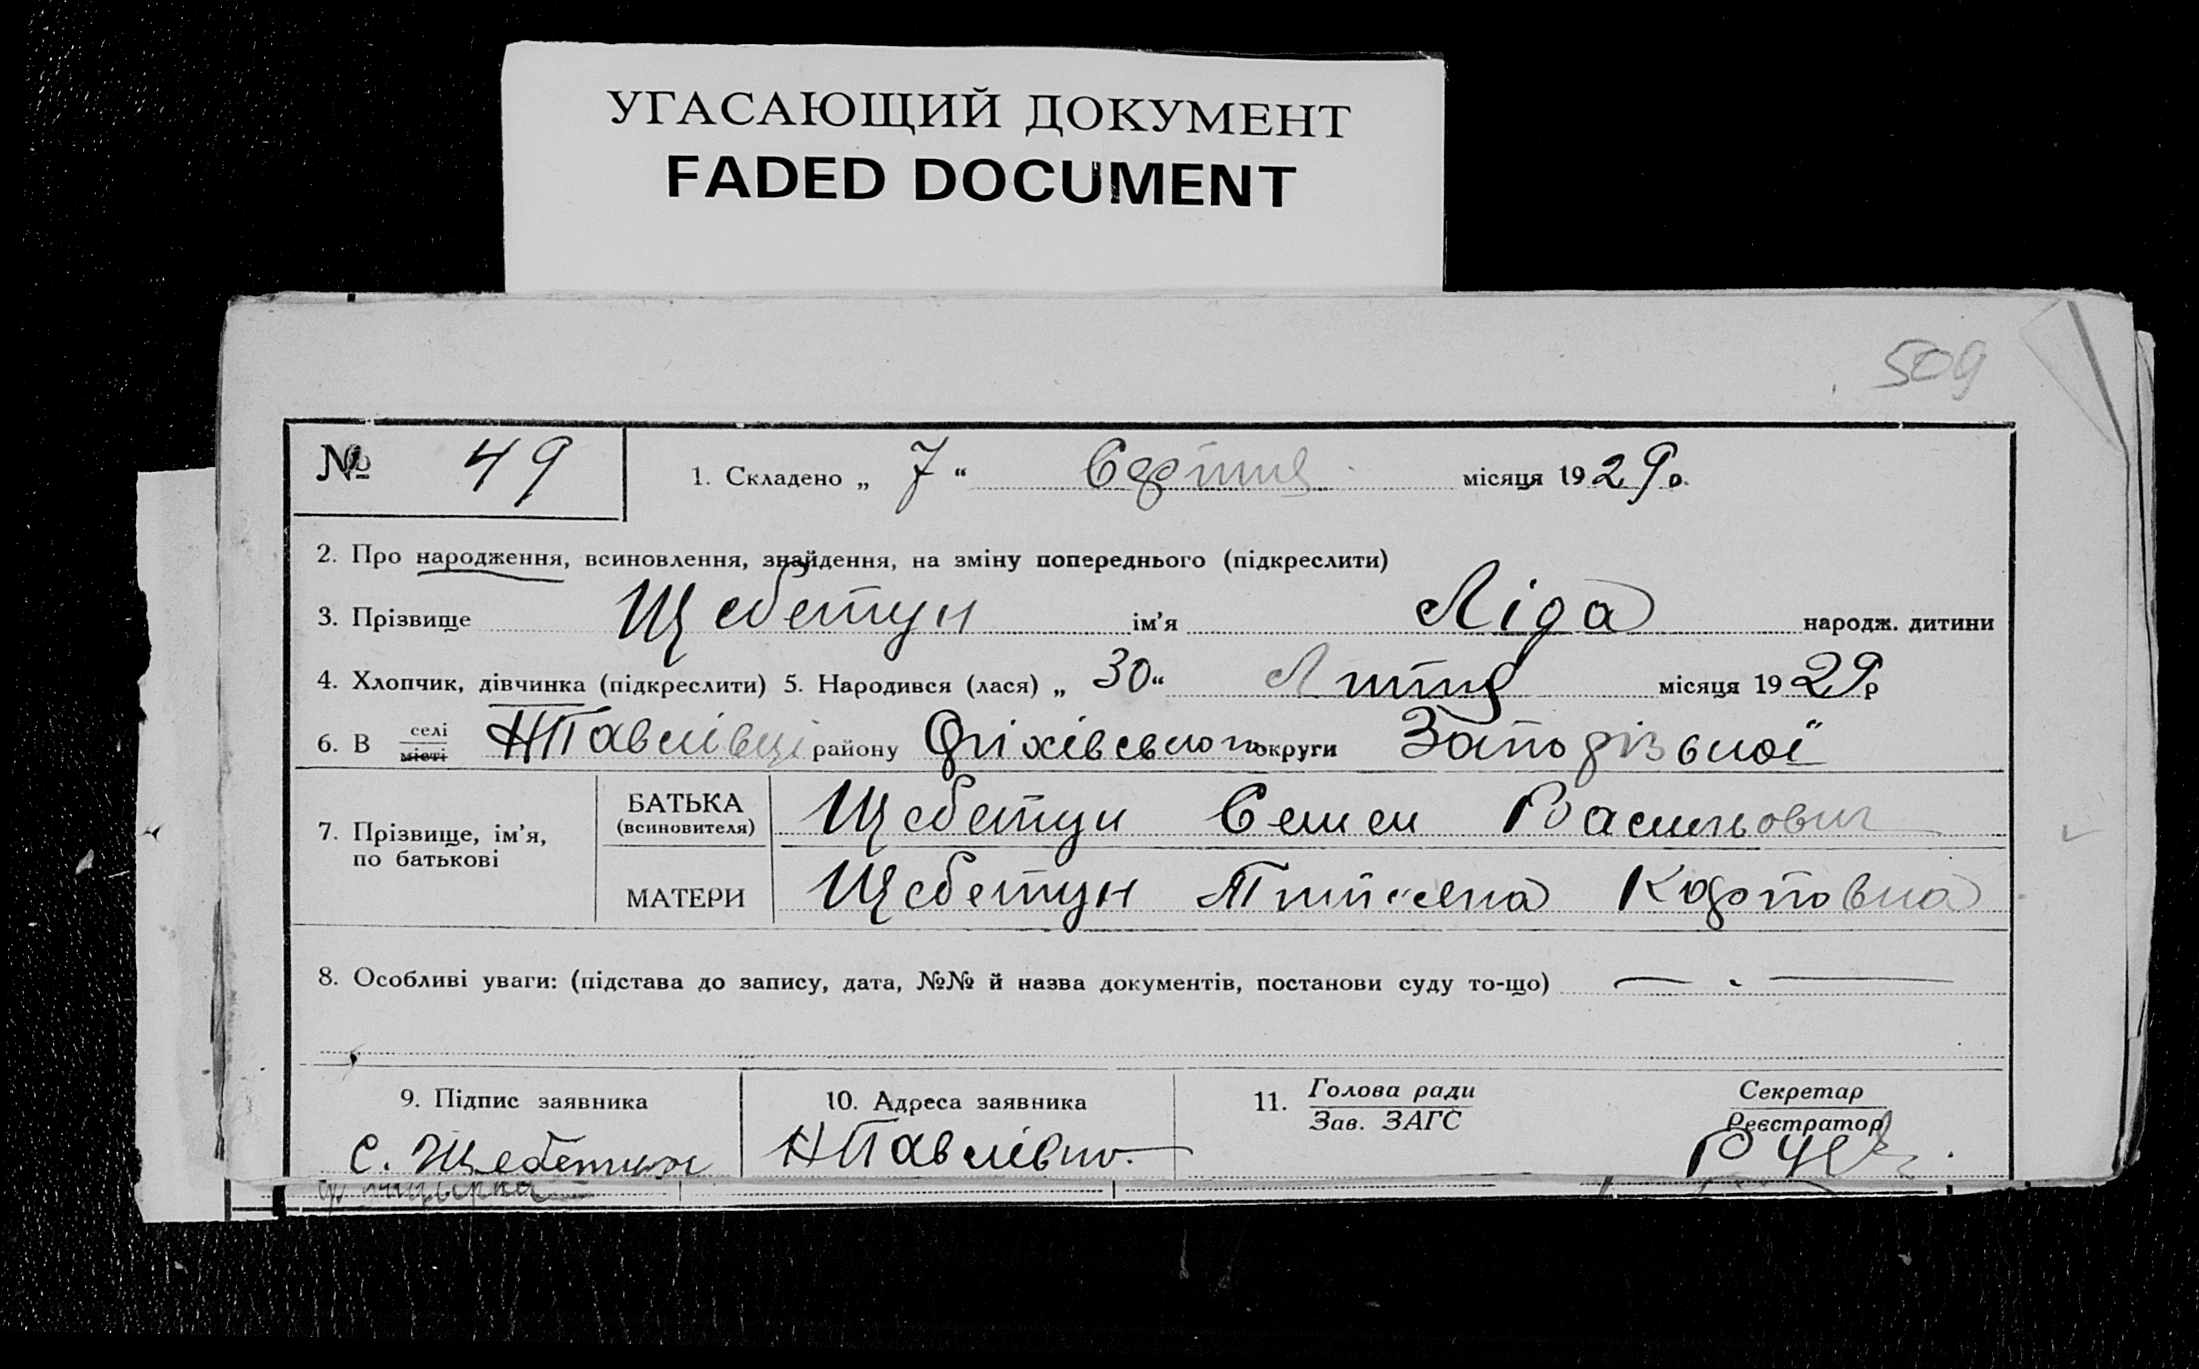 УГАСАЮЩИЙ ДОКУМЕНТ
FADED DOCUMENT
509
№ 49
1. Складено „ 7 “ Серпня місяця 1929р.
2. Про народження, всиновлення, знайдення, на зміну попереднього (підкреслити)
3. Прізвище Щебетун ім’я Ліда народж. дитини
4. Хлопчик, дівчинка (підкреслити) 5. Народився (лася) „ 30 “ Липня місяця 1929р
6. В селі місті НПавлівці району Оріхівського округи Запорізької
7. Прізвище, ім’я, по батькові
БАТЬКА (всиновителя) Щебетун Семен Васильович
МАТЕРИ Щебетун Титяна Карповна
8. Особливі уваги: (підстава до запису, дата, №№ й назва документів, постанови суду то-що)
9. Підпис заявника
10. Адреса заявника
11. Голова ради
Зав. ЗАГС
Секретар
Реєстратор
С. Щебетун
НПавлівка.